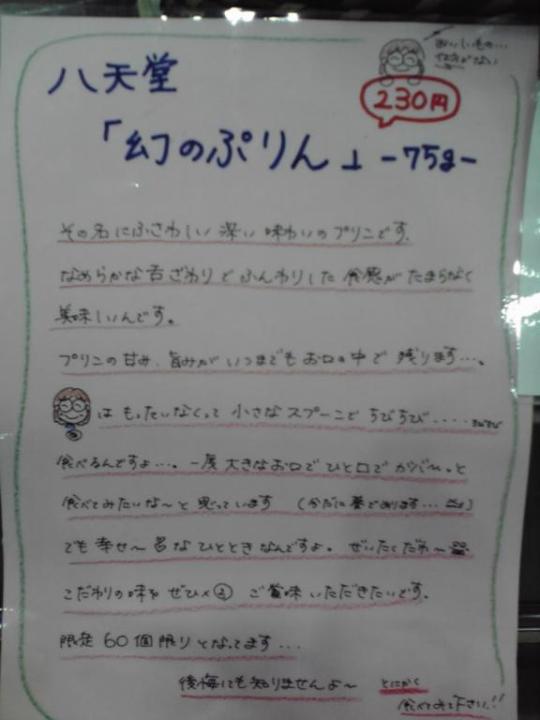 おいしいもの…
仕方がない
230円
八天堂
「幻のぷりん」-75g-
その名にふさわしい 深い 味わいのプリンです.
なめらかな舌ざわりと ふんわりした 食感が たまらなく
美味しいんです。
プリンの甘み、旨みが いつまでも お口の中で 残ります…。
は もったいなくって 小さなスプーンで ちびちび‥‥‥ちびちび
食べるんですよ…。一度 大きなお口で ひと口で ガバ〜っと
食べてみたいな〜と 思っています (かなに 夢であります…)
でも 幸せ〜 なひとときなんですよ。 ぜいたくだわ〜
こだわりの味を ぜひ×② ご賞味 いただきたいです.
限定 60個限り となってます…
後悔しても知りませんよ〜 とにかく
食べてみて下さい!!